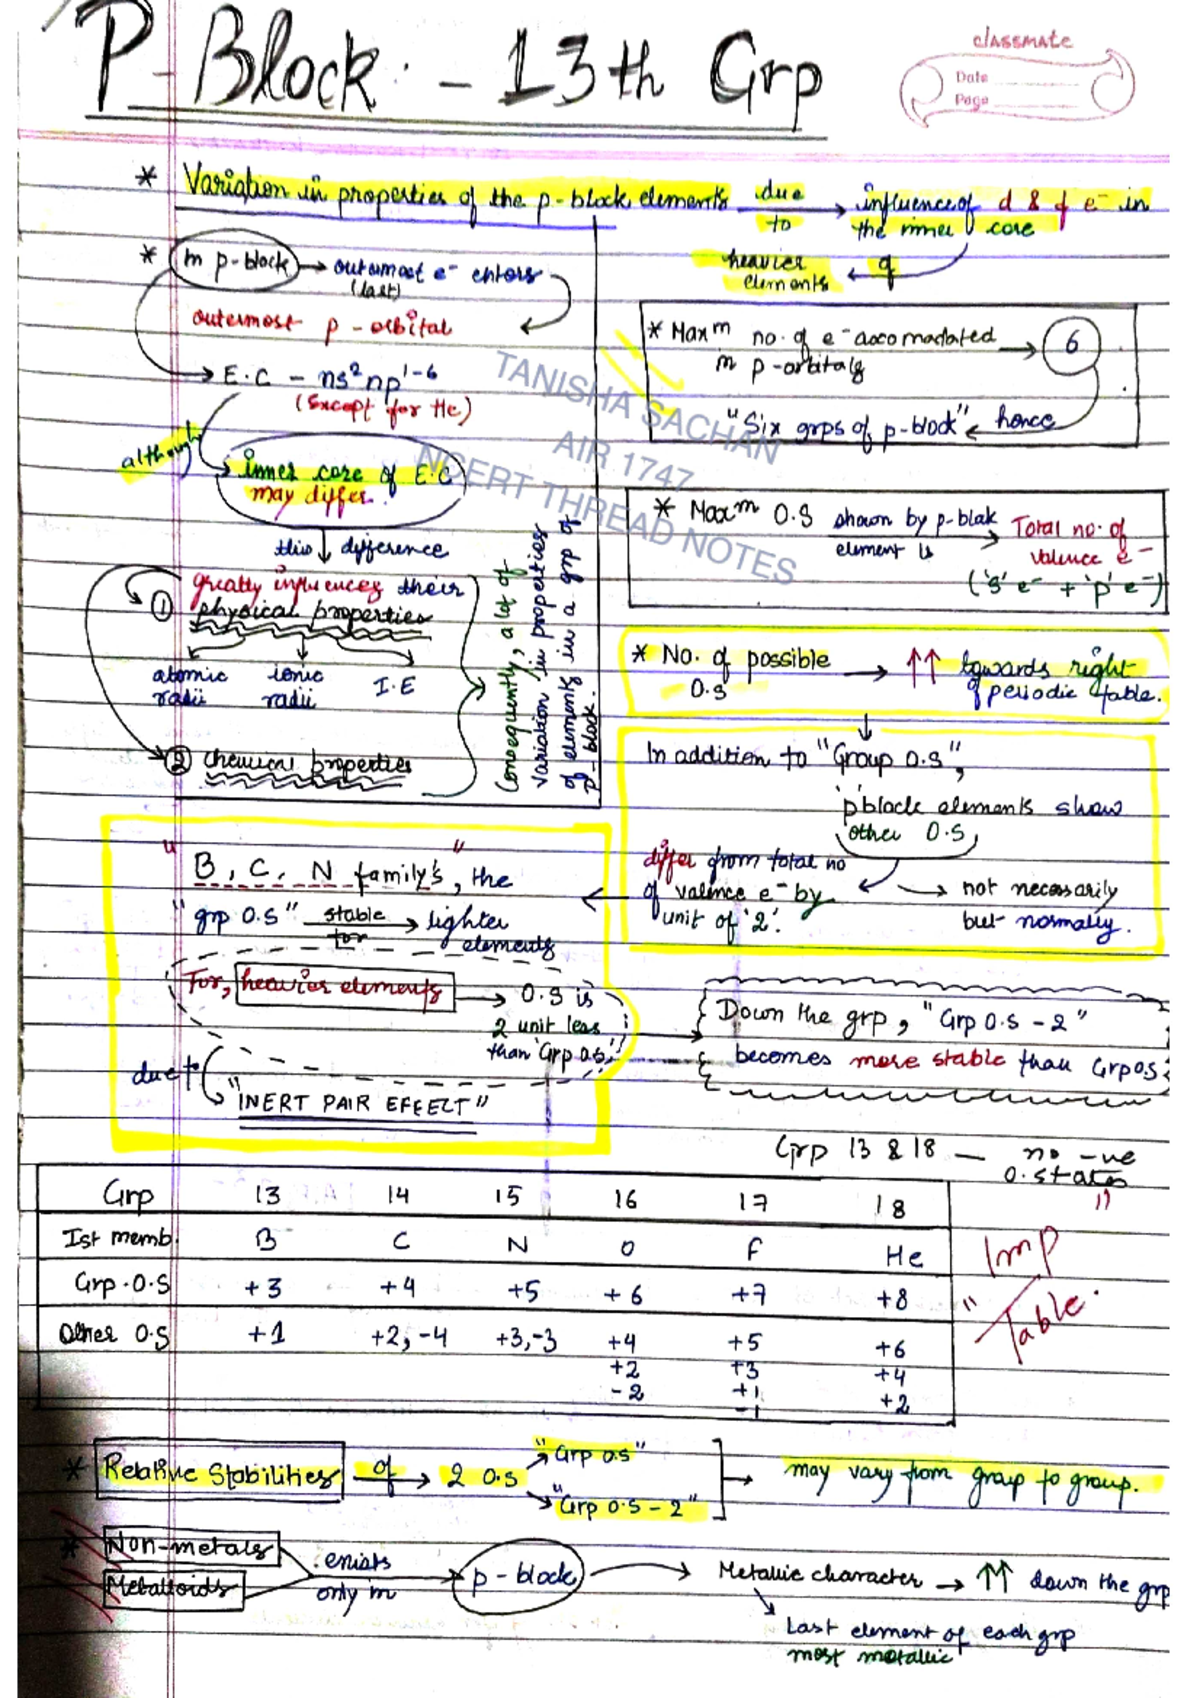 P-Block :- 13th Grp
classmate
Date
Page
* Variation in properties of the p-block elements due to → influence of d & f e⁻ in the inner core
of
heavier elements
* In p-block → outermost e⁻ enters
(last)
outermost p-orbital
→ E.C - ns²np¹⁻⁶
(Except for He)
although
inner core of E.C
may differ.
this ↓ difference
① greatly influences their
physical properties
atomic radii
ionic radii
I.E
② chemical properties
Consequently, a lot of
variation in properties
of elements in a grp of
p-block.
* Maxᵐ no. of e⁻ accomodated → 6
in p-orbitals
"Six grps of p-block" ← hence
* Maxᵐ O.S shown by p-blak element is → Total no. of
valence e⁻
('s' e⁻ + 'p' e⁻)
* No. of possible O.S → ↑↑ towards right
of periodic table.
In addition to "Group O.S",
'p' block elements show
other O.S,
differ from total no
of valence e⁻ by
unit of '2'.
→ not necessarily
but normally.
"B, C, N family's", the
"grp O.S" stable for → lighter
elements
For, heavier elements → O.S is
2 unit less
than 'Grp O.S'
due to
"INERT PAIR EFFECT"
Down the grp, "Grp O.S - 2"
becomes more stable than Grp O.S
Grp 13 & 18 — no -ve
O.states
Grp 13 14 15 16 17 18
Ist memb. B C N O F He
Grp.O.S +3 +4 +5 +6 +7 +8
Other O.S +1 +2, -4 +3, -3 +4 +5 +6
+2 +3 +4
-2 +1 +2
-1
"Imp
Table."
* Relative Stabilities of → 2 O.S
"Grp O.S"
"Grp O.S - 2"
→ may vary from group to group.
* Non-metals
Metalloids
exists only in → p-block → Metallic character → ↑↑ down the grp
Last element of each grp
most metallic
TANISHA SACHAN
AIR 1747
NCERT THREAD NOTES